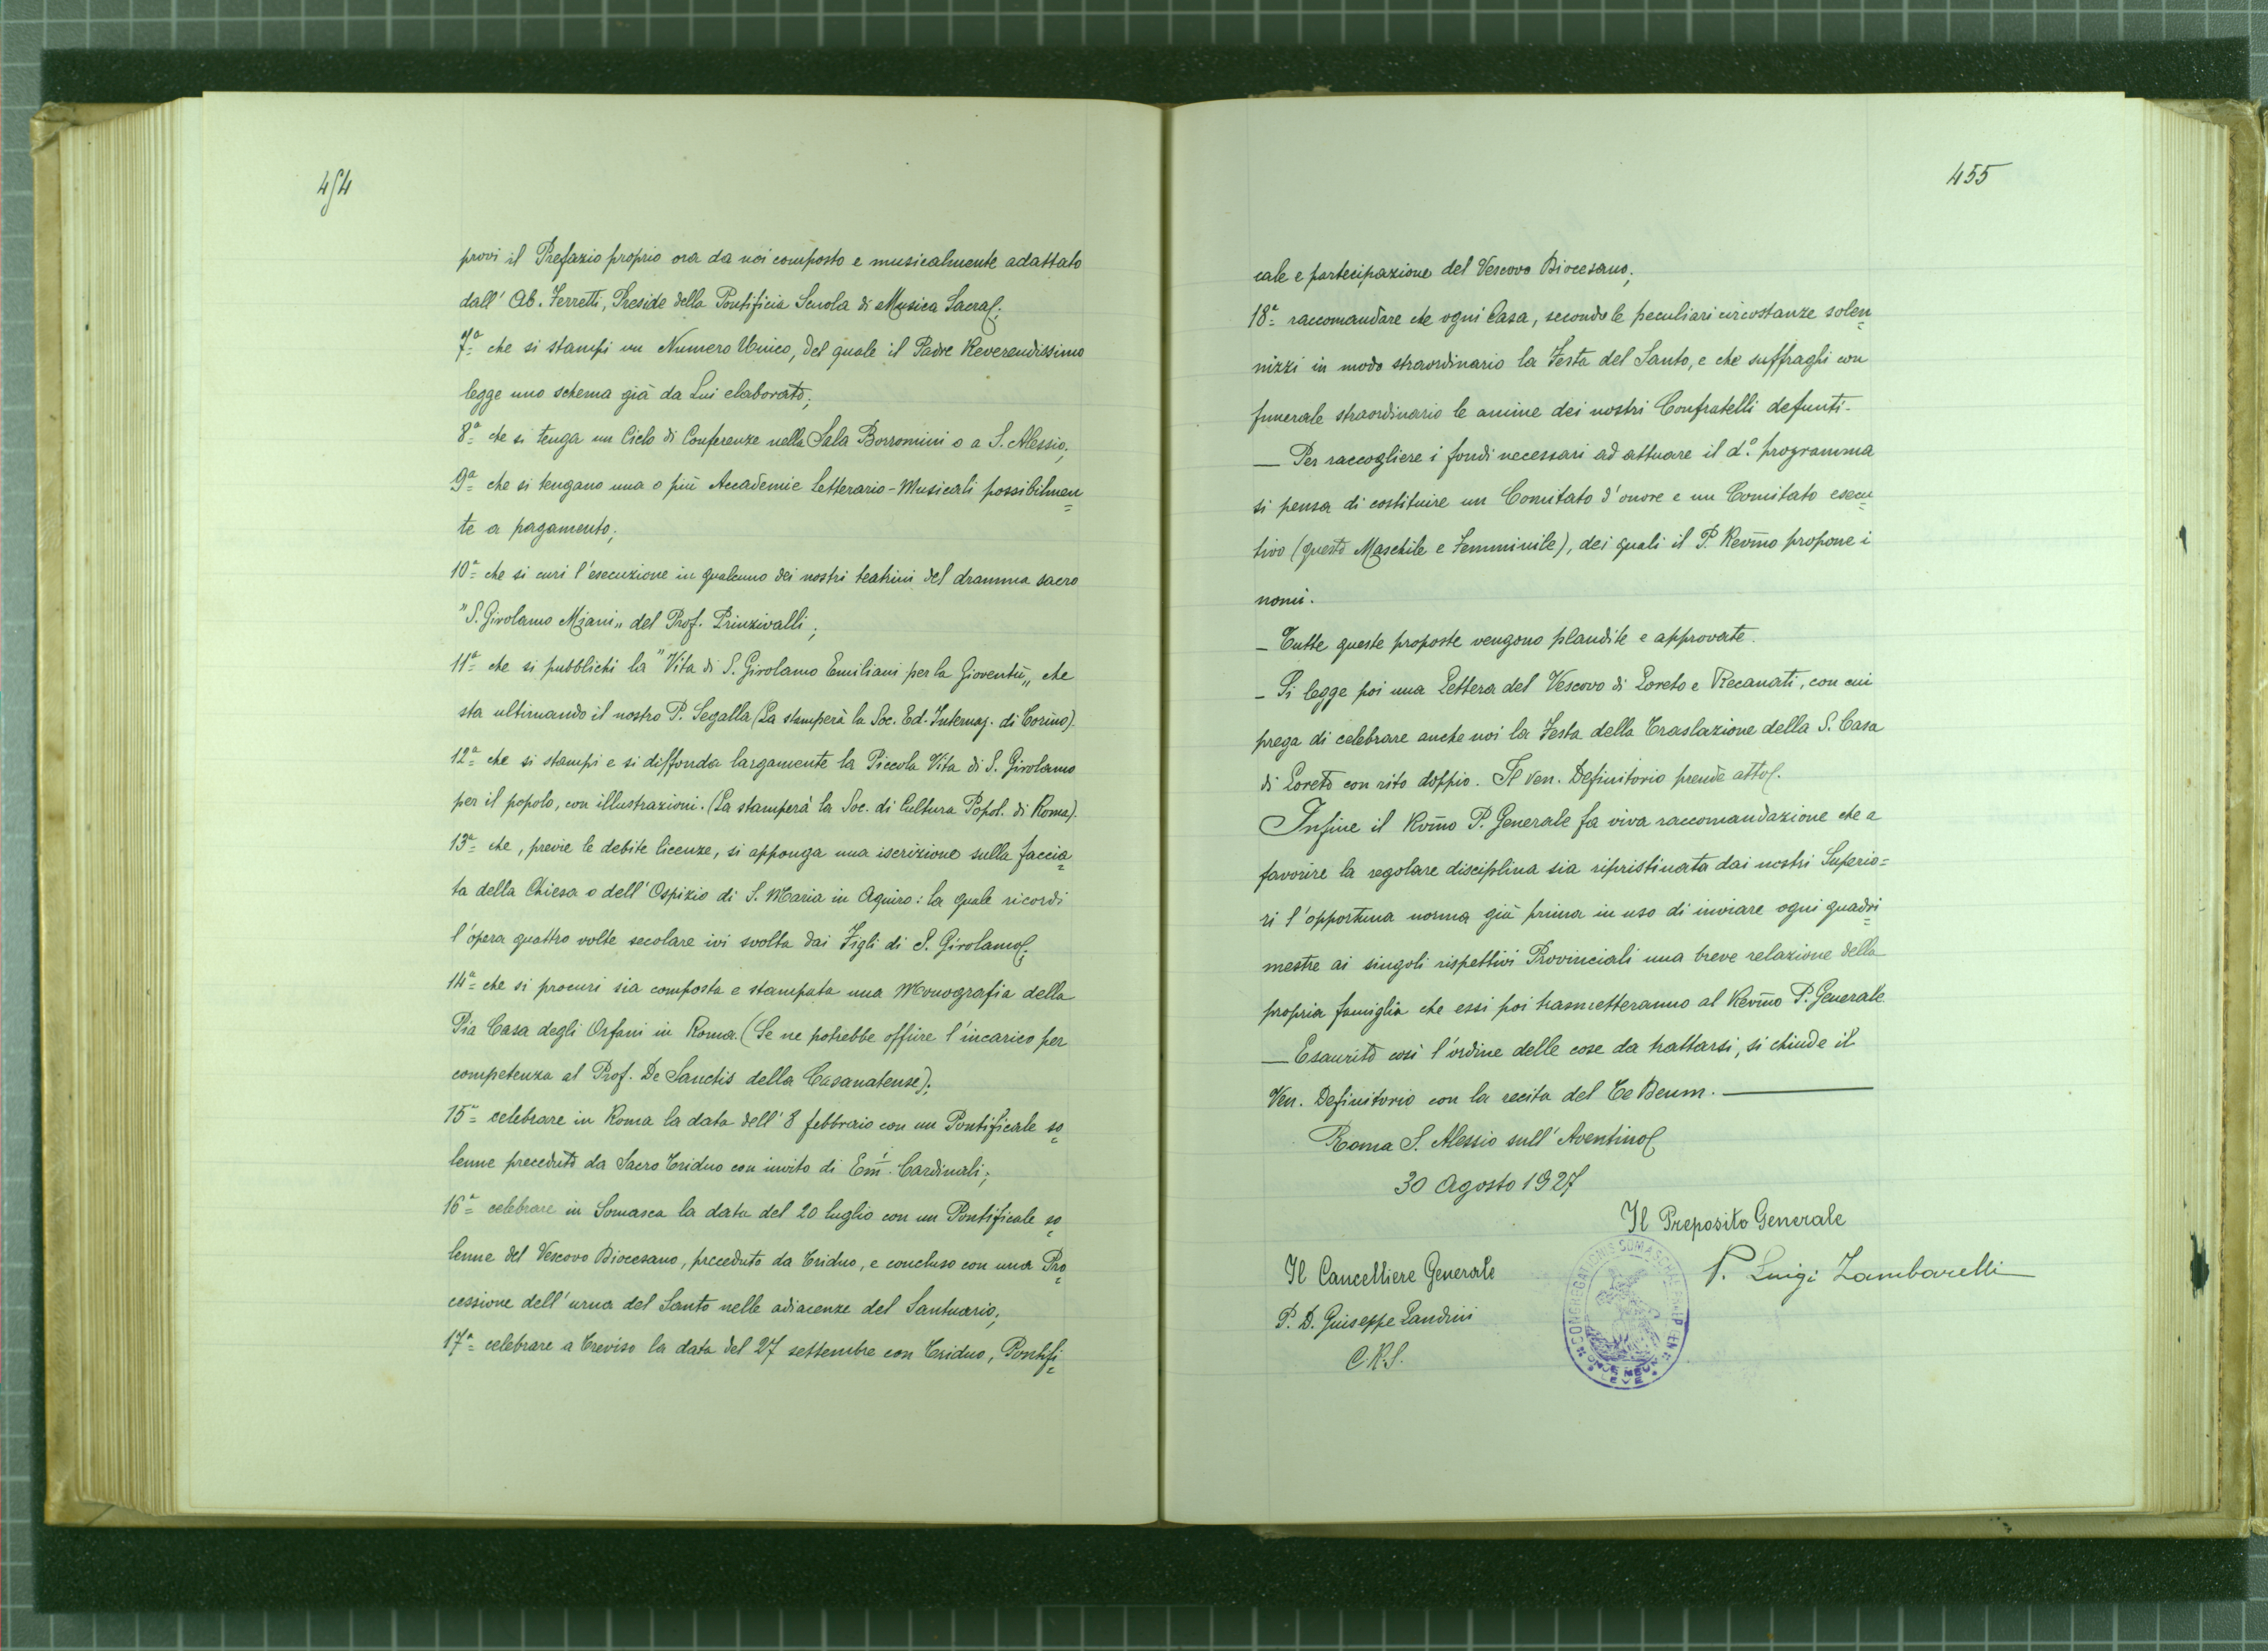 454
provi il Prefazio proprio ora da noi composto e musicalmente adattato
dall' Ab. Ferretti, Preside della Pontificia Scuola di Musica Sacra;
7ª che si stampi un Numero Unico, del quale il Padre Reverendissimo
legge uno schema già da Lui elaborato;
8ª che si tenga un Ciclo di Conferenze nella Sala Borromini o a S. Alessio;
9ª che si tengano una o più Accademie Letterario-Musicali possibilmen=
te a pagamento;
10ª che si curi l'esecuzione in qualcuno dei nostri teatrini del dramma sacro
"S. Girolamo Miani„ del Prof. Prinzivalli;
11ª che si pubblichi la "Vita di S. Girolamo Emiliani per la Gioventù„ che
sta ultimando il nostro P. Segalla (La stamperà la Soc. Ed. Internaz. di Torino).
12ª che si stampi e si diffonda largamente la Piccola Vita di S. Girolamo
per il popolo, con illustrazioni. (La stamperà la Soc. di Cultura Popol. di Roma).
13ª che, previe le debite licenze, si apponga una iscrizione sulla faccia=
ta della Chiesa o dell' Ospizio di S. Maria in Aquiro: la quale ricordi
l'opera quattro volte secolare ivi svolta dai Figli di S. Girolamo;
14ª che si procuri sia composta e stampata una Monografia della
Pia Casa degli Orfani in Roma. (Se ne potrebbe offrire l'incarico per
competenza al Prof. De Sanctis della Casanatense);
15ª celebrare in Roma la data dell' 8 febbraio con un Pontificale so=
lenne preceduto da Sacro Triduo con invito di Em̄i Cardinali;
16ª celebrare in Somasca la data del 20 luglio con un Pontificale so=
lenne del Vescovo Diocesano, preceduto da Triduo, e concluso con una Pro=
cessione dell'urna del Santo nelle adiacenze del Santuario;
17ª celebrare a Treviso la data del 27 settembre con Triduo, Pontifi=
455
cale e partecipazione del Vescovo Diocesano;
18ª raccomandare che ogni Casa, secondo le peculiari circostanze solen=
nizzi in modo straordinario la Festa del Santo, e che suffraghi con
funerale straordinario le anime dei nostri Confratelli defunti-
— Per raccogliere i fondi necessari ad attuare il d.º programma
si pensa di costituire un Comitato d'onore e un Comitato esecu=
tivo (questo Maschile e Femminile), dei quali il P. Rev̄mo propone i
nomi.
– Tutte queste proposte vengono plaudite e approvate.
– Si legge poi una Lettera del Vescovo di Loreto e Recanati, con cui
prega di celebrare anche noi la Festa della Traslazione della S. Casa
di Loreto con rito doppio. Il Ven. Definitorio prende atto.
Infine il Rv̄mo P. Generale fa viva raccomandazione che a
favorire la regolare disciplina sia ripristinata dai nostri Superio=
ri l'opportuna norma già prima in uso di inviare ogni quadri=
mestre ai singoli rispettivi Provinciali una breve relazione della
propria famiglia che essi poi trasmetteranno al Rev̄mo P. Generale
— Esaurito così l'ordine delle cose da trattarsi, si chiude il
Ven. Definitorio con la recita del Te Deum. —
Roma S. Alessio sull' Aventino
30 Agosto 1927
Il Preposito Generale
P. Luigi Zambarelli
Il Cancelliere Generale
P. D. Giuseppe Landini
C.R.S.
ONUS MEUM
LEVE